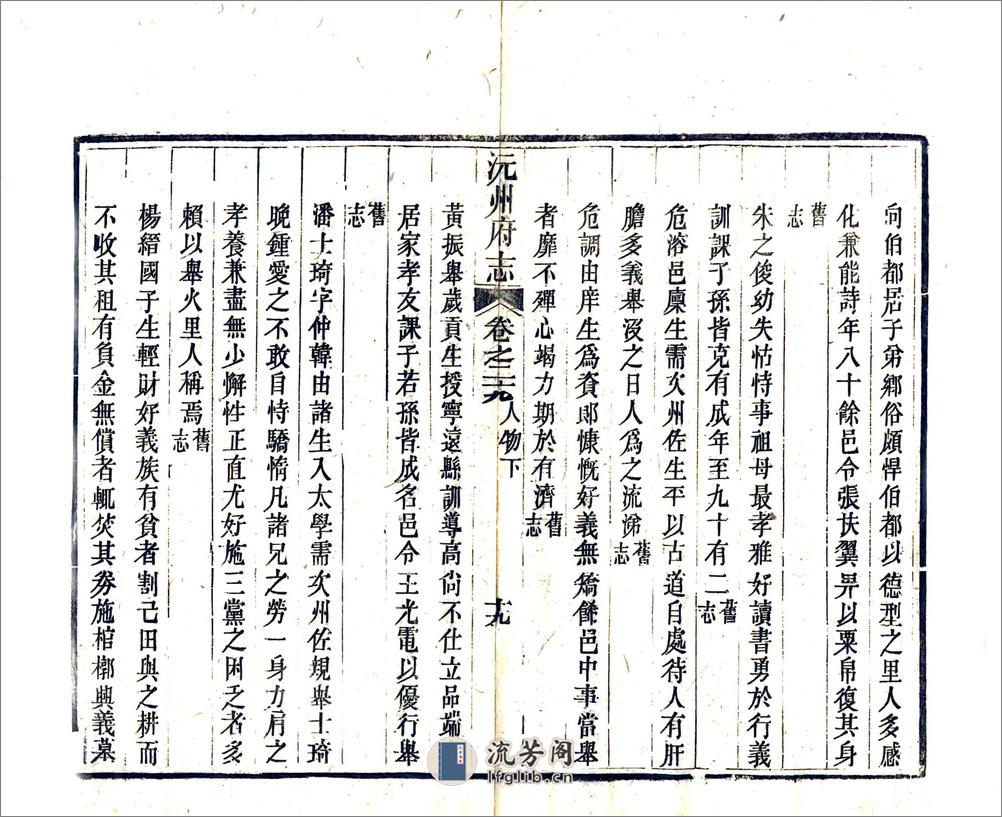 向伯都居子弟鄉俗頗悍伯都以德型之里人多感
化兼能詩年八十餘邑令張扶翼畀以粟帛復其身
舊志
朱之俊幼失怙恃事祖母最孝雅好讀書勇於行義
訓課子孫皆克有成年至九十有二舊志
危溶邑廩生需次州佐生平以古道自處待人有肝
膽多義舉沒之日人爲之流涕舊志
危調由庠生爲資郎慷慨好義無矯餙邑中事當舉
者靡不殫心竭力期於有濟舊志
沅州府志 卷之二十九 人物下 十九
黃振舉歲貢生授寧遠縣訓導高尙不仕立品端
居家孝友課子若孫皆成名邑令王光電以優行舉
舊志
潘士琦字仲韓由諸生入太學需次州佐規舉士琦
晚鍾愛之不敢自恃驕惰凡諸兄之勞一身力肩之
孝養兼盡無少懈性正直尤好施三黨之困乏者多
賴以舉火里人稱焉舊志
楊縉國子生輕財好義族有貧者割己田與之耕而
不收其租有負金無償者輒焚其券施棺槨興義塚
流芳阁
lfglib.cn